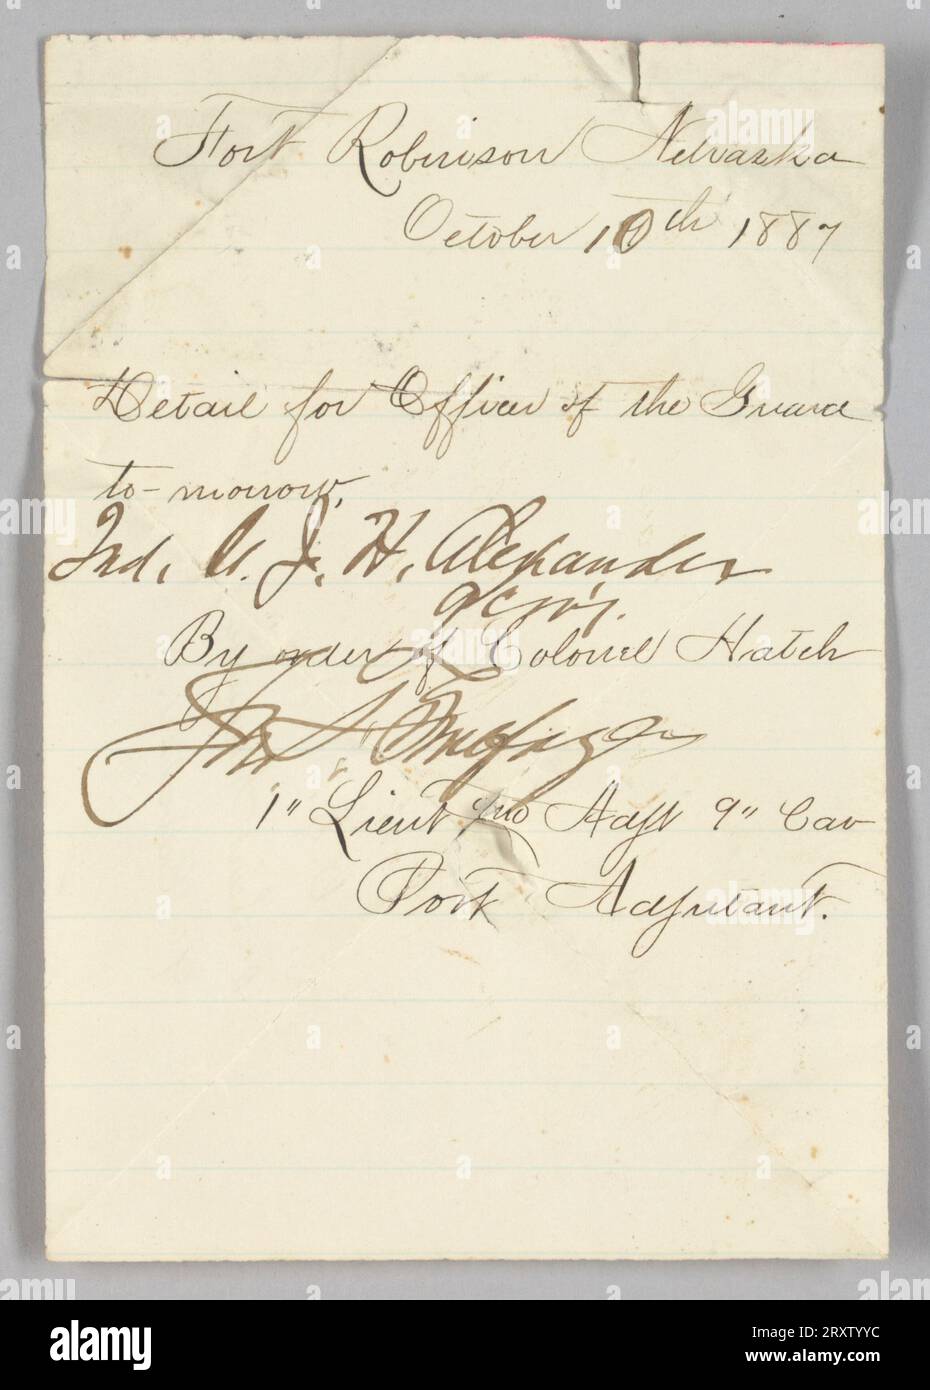 Fort Robinson Nebraska
October 10th 1887
Detail for Officer of the Guard
to-morrow.
2nd. Lt. J. H. Alexander
9 Cav'y.
By order of Colonel Hatch
1" Lieut and Adjt 9" Cav
Post Adjutant.
alamy
Image ID: 2RXTYYC
www.alamy.com